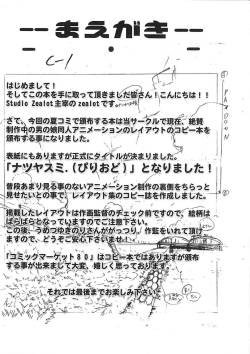 --まえがき--
はじめまして！
そしてこの本を手に取って頂きました皆さん！こんにちは！！
Studio Zealot主宰のzealotです
さて、今回の夏コミで頒布する本は当サークルで現在、絶賛
制作中の男の娘同人アニメーションのレイアウトのコピー本を
頒布する事になりました。
表紙にもありますが正式にタイトルが決まりました。
「ナツヤスミ.（ぴりおど）」となりました！
普段あまり見る事のないアニメーション制作の裏側をちらっと
見せたいとの事で、レイアウト集のコピー誌を作成しました。
掲載したレイアウトは作画監督のチェック前ですので、絵柄は
ばらばらとなっていますのでご注意下さい。
この後、うめつゆきのりさんががっつり、作監を入れて頂く
ので、どうぞご安心下さいませ
「コミックマーケット８０」はコピー本ではありますが頒布
する事が出来まして大変、嬉しく思っております。
それでは最後までお楽しみ下さい
C-1